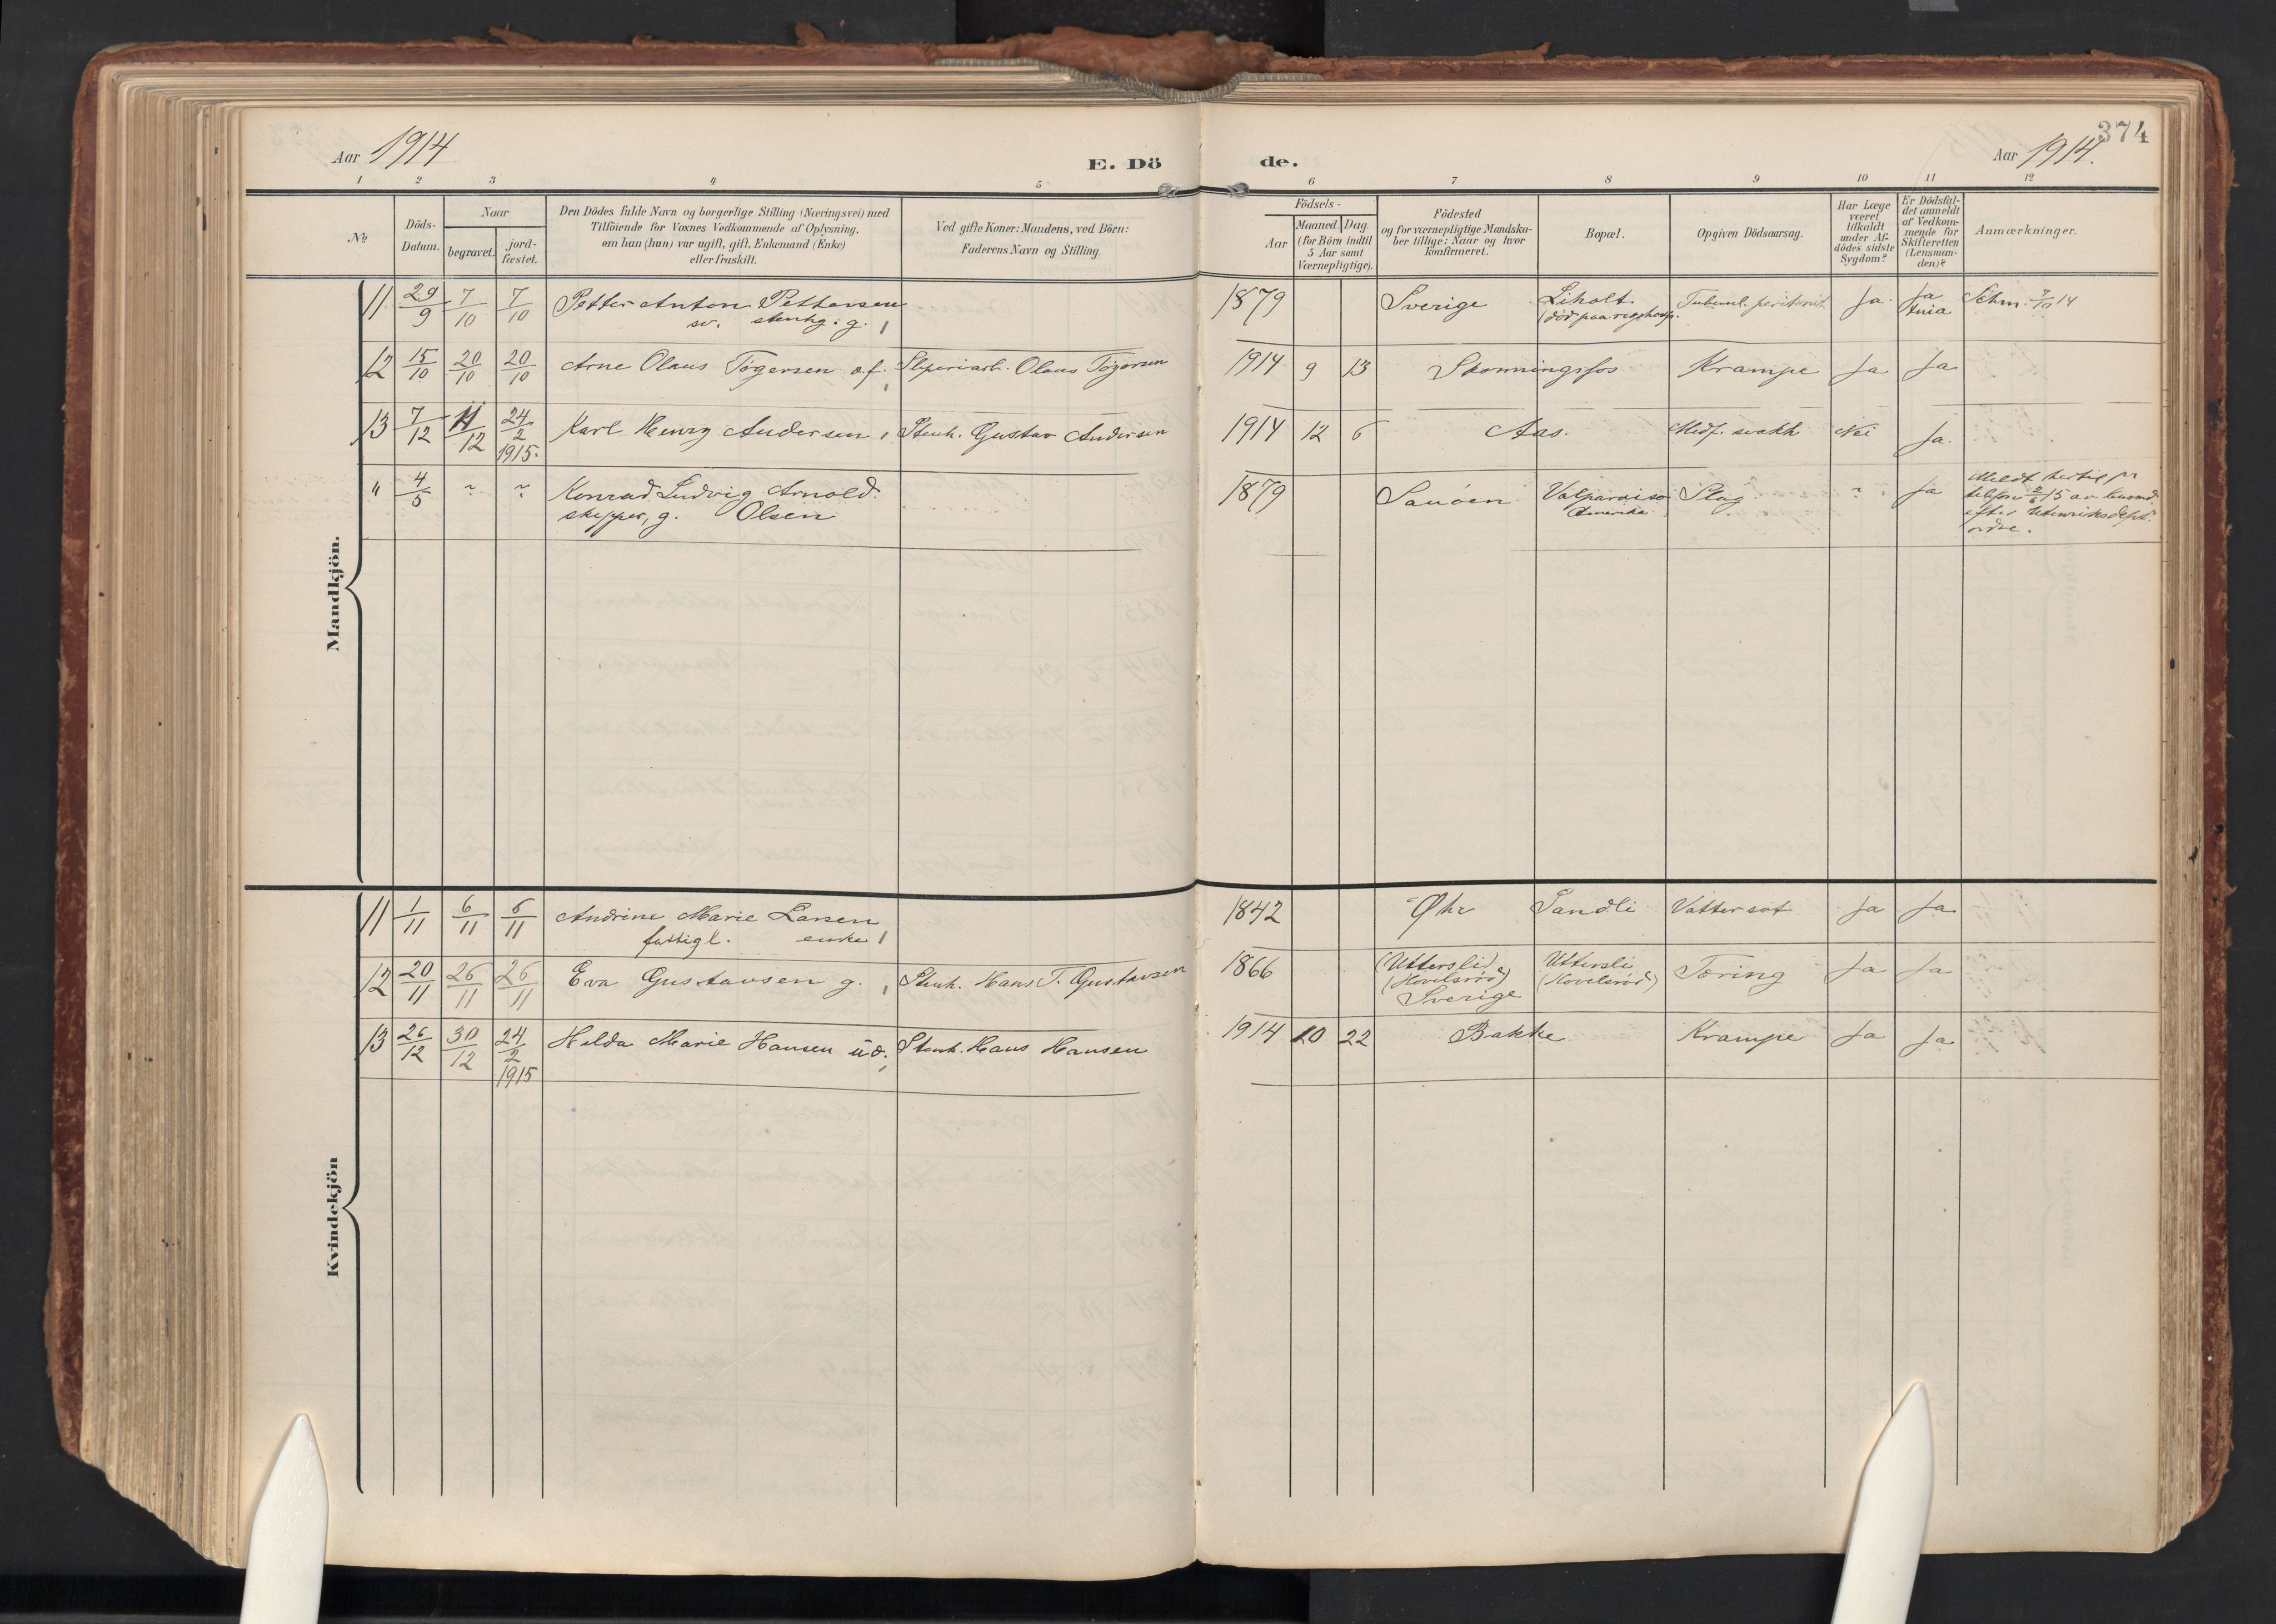 374
Aar 1914
E. Dö
de.
Aar 1914.
1 2 3 4 5 6 7 8 9 10 11 12
No
Döds-
Datum.
Naar
begravet.
jord-
fæstet.
Den Dödes fulde Navn og borgerlige Stilling (Næringsvei) med
Tilföiende for Voxnes Vedkommende af Oplysning,
om han (hun) var ugift, gift, Enkemand (Enke)
eller fraskilt.
Ved gifte Koner: Mandens, ved Börn:
Faderens Navn og Stilling.
Födsels-
Aar
Maaned. Dag.
(for Börn indtil
5 Aar samt
Værnepligtige).
Födested
og for værnepligtige Mandska-
ber tillige: Naar og hvor
konfirmeret.
Bopæl.
Opgiven Dödsaarsag.
Har Læge
været
tilkaldt
under Af-
dödes sidste
Sygdom?
Er Dödsfal-
det anmeldt
af Vedkom-
mende for
Skifteretten
(Lensman-
den)?
Anmærkninger.
Mandkjön.
11 29/9 7/10 7/10 Petter Anton Pettersen 1879 Sverige Liholt Tuberul. peritonit Ja Ja Schm. 7/10 14
sv. stenhg. g. (död paa rigshosp.
12 15/10 20/10 20/10 Arne Olaus Törgersen o.f. Sliperiarb. Olaus Törgersen 1914 9 13 Skonningsfos Krampe Ja Ja
13 7/12 11/12 24/2 1915. Karl Henry Andersen Stenh. Gustav Andersen 1914 12 6 Aas. Medf. svakh Nei Ja.
" 4/5 ~ ~ Konrad Ludvig Arnold 1879 Sauöen Valparaiso Slag ~ Ja Meldt hertil pr
skipper, g. Olsen Amerika telefon 2/6 15 av lensmd.
efter Utenriksdept.
ordre.
Kvindekjön
11 1/11 6/11 6/11 Andrine Marie Larsen 1842 Øhr Sandli Vattersot Ja Ja
fattigl. enke
12 20/11 26/11 26/11 Eva Gustavsen g. Stenh. Hans T. Gustavsen 1866 (Utterslid Uttersli Tæring Ja Ja
(Hovelsröd) (Hovelsröd)
Sverige
13 26/12 30/12 24/2 1915 Helda Marie Hansen Stenh. Hans Hansen 1914 10 22 Bakke Krampe Ja Ja